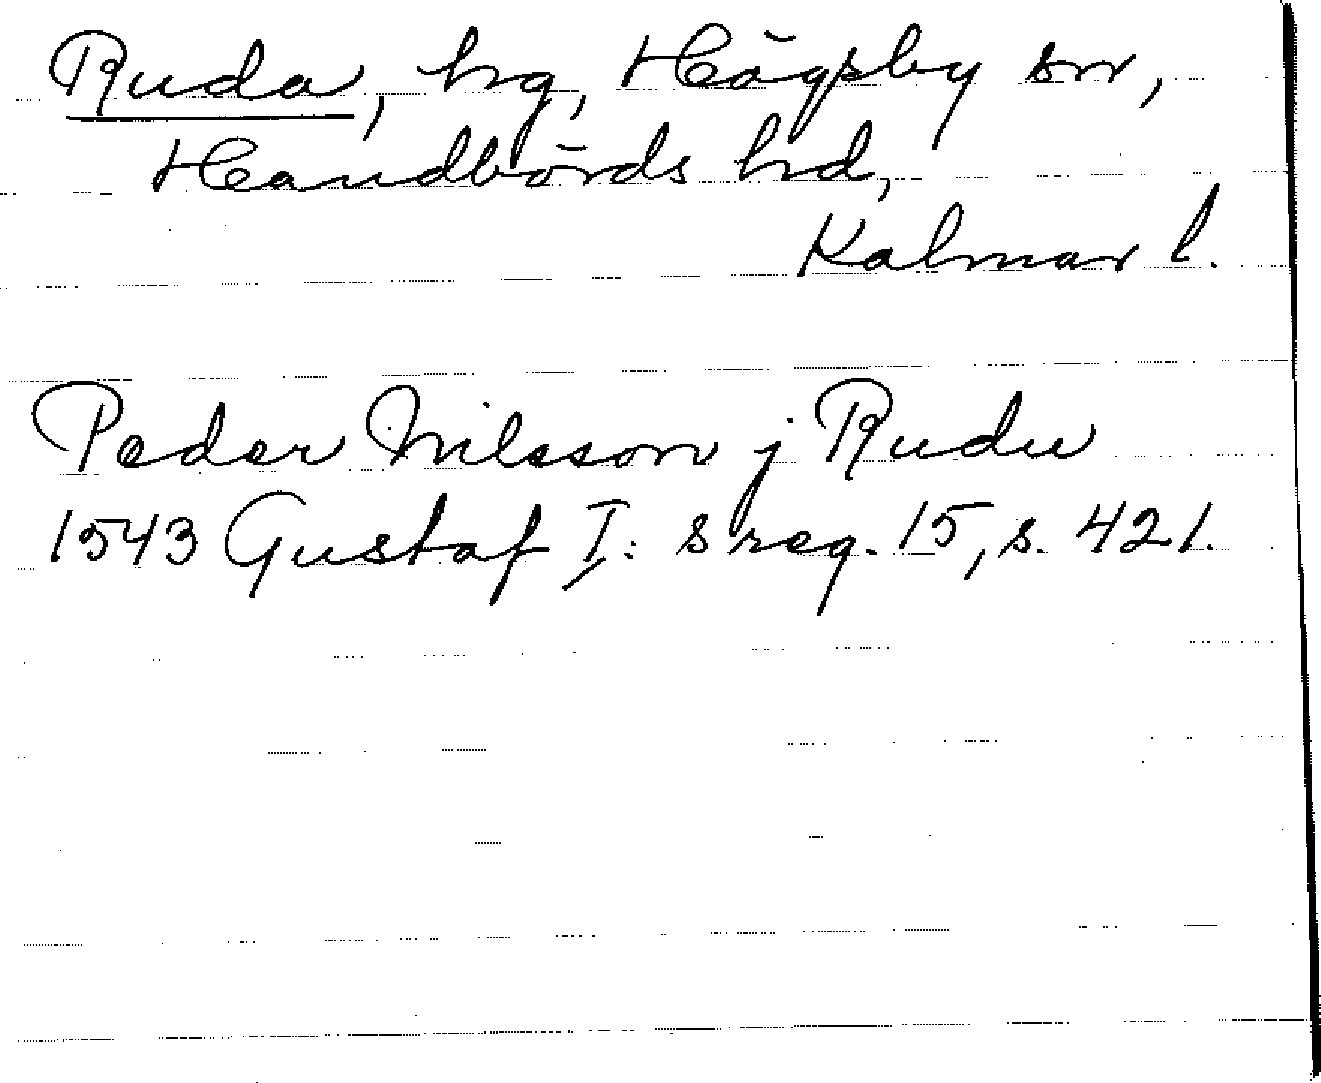 Ruda, hg, Högsby sn,
Handbörds hd,
Kalmar l.
Peder Nilsson j Rudu
1543 Gustaf I:s reg. 15, s. 421.